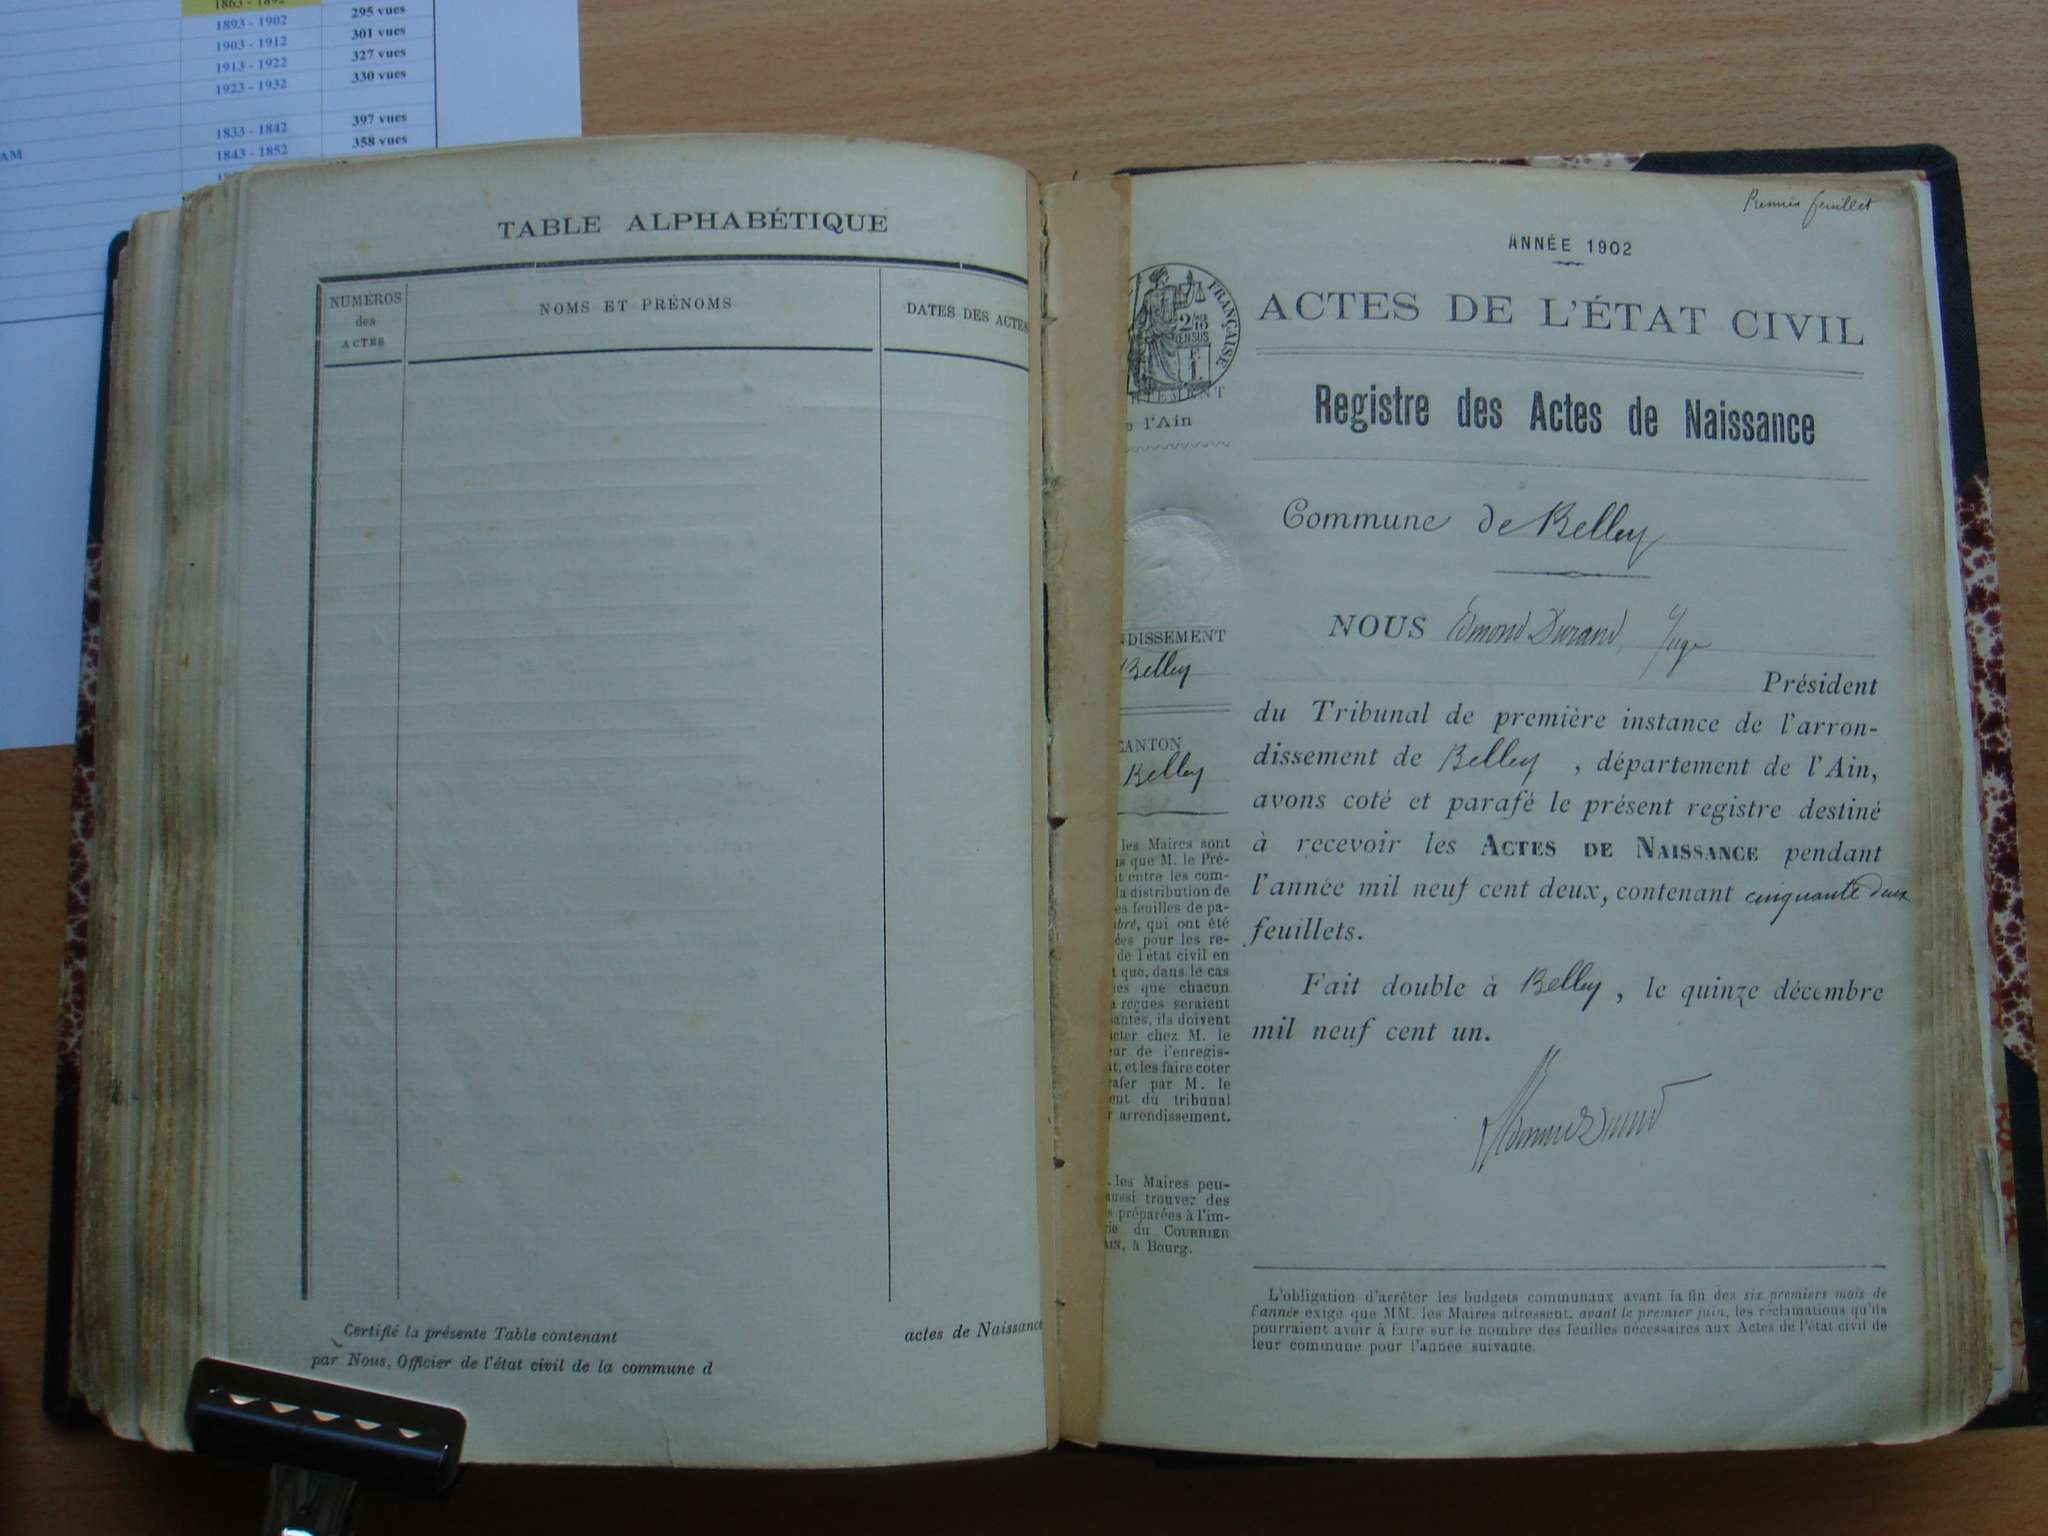 1863 - 1892
1893 - 1902 295 vues
1903 - 1912 301 vues
1913 - 1922 327 vues
1923 - 1932 330 vues
1833 - 1842 397 vues
AM 1843 - 1852 358 vues
TABLE ALPHABÉTIQUE
NUMÉROS
des
ACTES
NOMS ET PRÉNOMS
DATES DES ACTES
Certifié la présente Table contenant actes de Naissance
par Nous, Officier de l'état civil de la commune d
Premier feuillet
ANNÉE 1902
FRANÇAISE
2/10
EN SUS
F.
1
ACTES DE L'ÉTAT CIVIL
RTEMENT
e l'Ain
Registre des Actes de Naissance
Commune de Belley
NDISSEMENT
Belley
CANTON
Belley
NOUS Edmond Durand, Juge
Président
du Tribunal de première instance de l'arron-
dissement de Belley, département de l'Ain,
avons coté et parafé le présent registre destiné
à recevoir les ACTES DE NAISSANCE pendant
l'année mil neuf cent deux, contenant cinquante deux
feuillets.
Fait double à Belley, le quinze décembre
mil neuf cent un.
Edmond Durand
les Maires sont
s que M. le Pré-
t entre les com-
la distribution de
es feuilles de pa-
bré, qui ont été
ées pour les re-
de l'état civil en
t que, dans le cas
les que chacun
reçues seraient
santes, ils doivent
cter chez M. le
eur de l'enregis-
t, et les faire coter
rafer par M. le
ent du tribunal
r arrendissement.
. les Maires peu-
aussi trouver des
s préparées à l'im-
rie du COURRIER
AIN, à Bourg.
L'obligation d'arrêter les budgets communaux avant la fin des six premiers mois de
l'année exige que MM. les Maires adressent, avant le premier juin, les réclamations qu'ils
pourraient avoir à faire sur le nombre des feuilles nécessaires aux Actes de l'état civil de
leur commune pour l'année suivante.